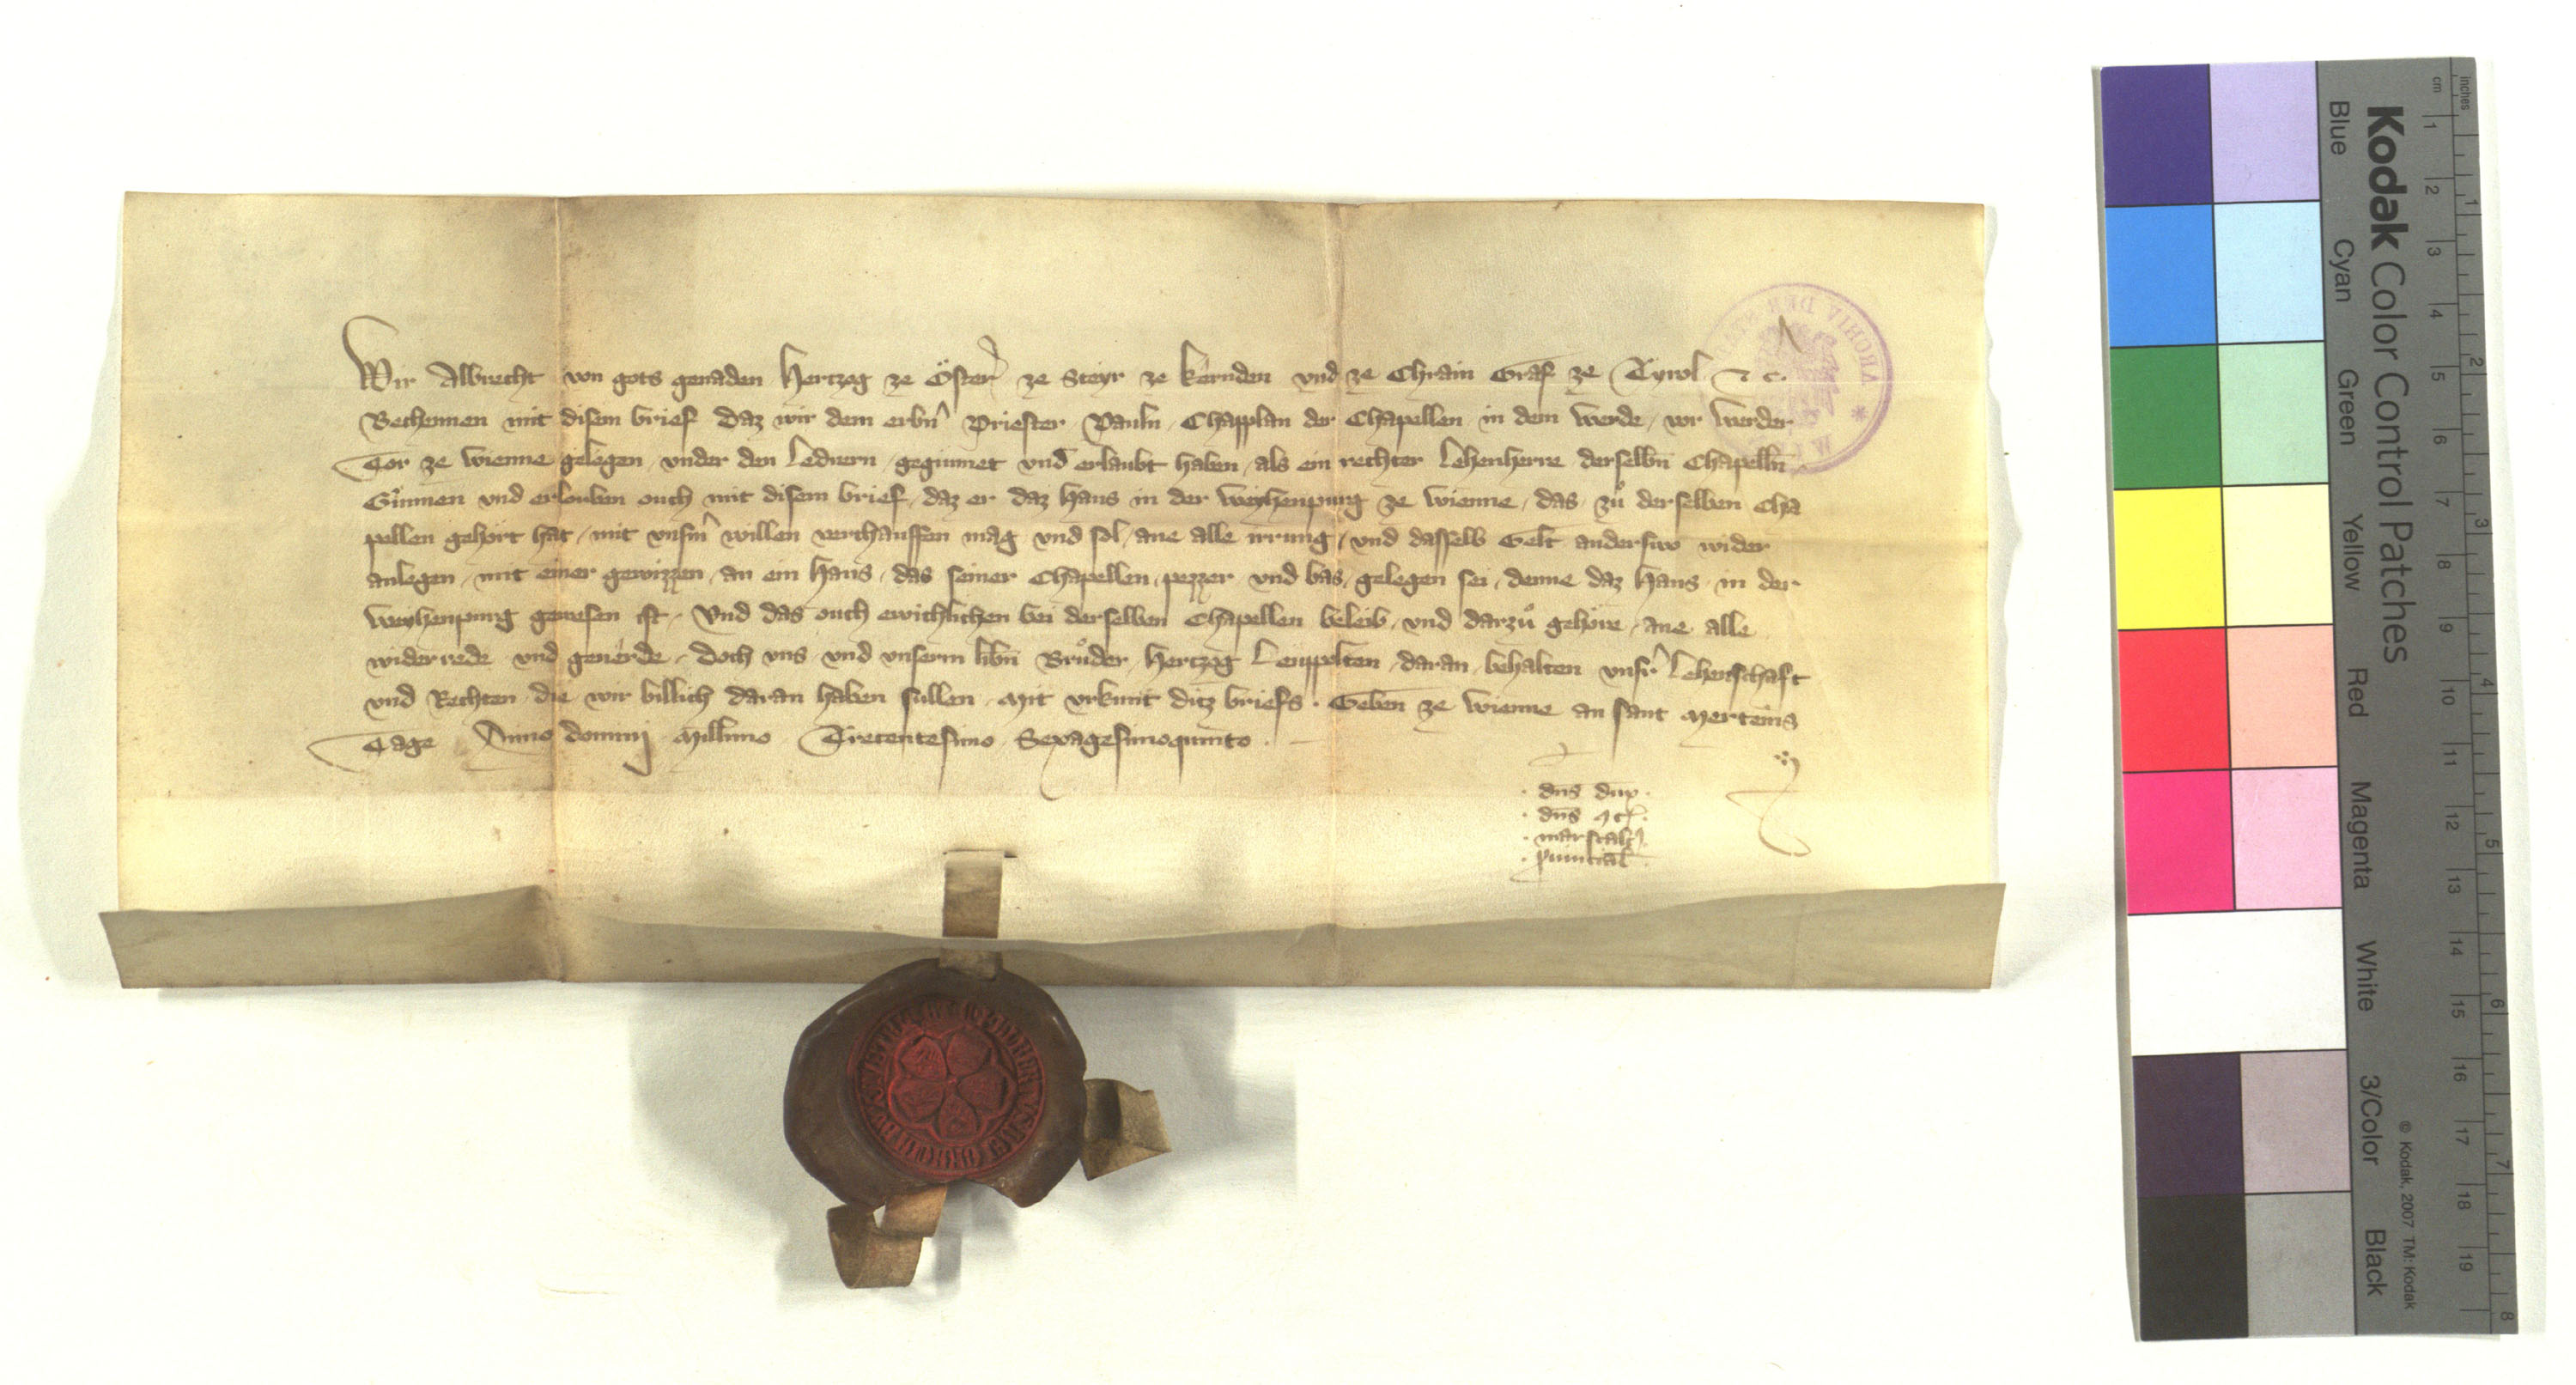 Wir Albrecht von gots genaden Hertzog ze Österr̂ ze Steyr ze kernden vnd ze Chrain Graf ze Tyrol ⁊ c.
Bechennen mit disem brief daz wir dem erbn̂ Priester Pauln Chapplan der Chapellen in dem Werde, vor Werder
Tor ze Wienne gelegen, vnder den Ledrern, gegunnet vnd erlaubt haben, als ein rechter Lehenherre derselbn̄ Chapelln̄
Gunnen vnd erlouben ouch mit disem brief, daz er daz Haus in der Weyhenpurg ze Wienne, das zů derselben Cha
pellen gehört hat, mit vnsm̂ willen verchauffen mag vnd sol, ane alle irrung, vnd dasselb Gelt anderswo wider
anlegen, mit einer gewizzen, an ein Haus, das seiner Chapellen, pezzer vnd bas, gelegen sei, denne daz Haus in der
Weyhenpurg gewesen ist, Vnd das ouch ewichlichen bei derselben Chapellen beleib, vnd darzů gehöre, ane alle
widerrede vnd geuerde, Doch vns vnd vnserm libn̄ Brůder Hertzog Leuppolten, daran, behalten vnsr̂ Lehenschaft
vnd Rechten, die wir billich daran haben sullen, Mit vrkunt ditz briefs. Geben ze Wienne an sant Merteins
Tage Anno domini Millimo Trecentesimo Sexagesimoquinto.
dn̄s dux.
dn̄s
marscalc̄.
Kodak Color Control Patches
Blue Cyan Green Yellow Red Magenta White 3/Color Black
© Kodak, 2007 TM: Kodak
inches 1 2 3 4 5 6 7 8
cm 1 2 3 4 5 6 7 8 9 10 11 12 13 14 15 16 17 18 19